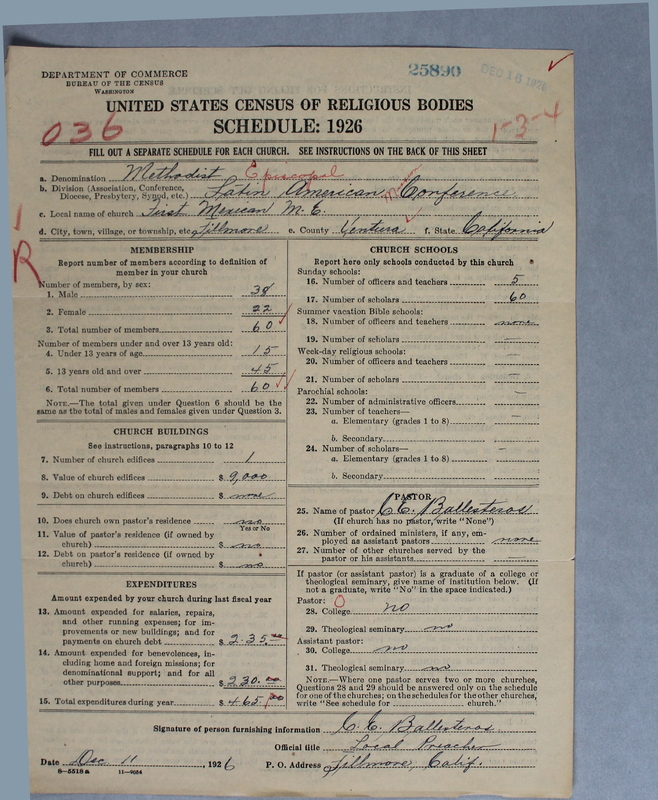 DEPARTMENT OF COMMERCE
BUREAU OF THE CENSUS
WASHINGTON
25890
DEC 16 1926
UNITED STATES CENSUS OF RELIGIOUS BODIES
SCHEDULE: 1926
036
1-3-4
FILL OUT A SEPARATE SCHEDULE FOR EACH CHURCH. SEE INSTRUCTIONS ON THE BACK OF THIS SHEET
a. Denomination Methodist Episcopal
b. Division (Association, Conference, Diocese, Presbytery, Synod, etc.) Latin American Conference
c. Local name of church First Mexican M. E.
d. City, town, village, or township, etc. Fillmore e. County Ventura f. State California
1
R
MEMBERSHIP
Report number of members according to definition of
member in your church
Number of members, by sex:
1. Male 38
2. Female 22
3. Total number of members 60
Number of members under and over 13 years old:
4. Under 13 years of age 15
5. 13 years old and over 45
6. Total number of members 60
NOTE.—The total given under Question 6 should be the
same as the total of males and females given under Question 3.
CHURCH BUILDINGS
See instructions, paragraphs 10 to 12
7. Number of church edifices 1
8. Value of church edifices $ 9,000
9. Debt on church edifices $ none
10. Does church own pastor's residence no
Yes or No
11. Value of pastor's residence (if owned by
church) $ no
12. Debt on pastor's residence (if owned by
church) $ no
EXPENDITURES
Amount expended by your church during last fiscal year
13. Amount expended for salaries, repairs,
and other running expenses; for im-
provements or new buildings; and for
payments on church debt $ 235.00
14. Amount expended for benevolences, in-
cluding home and foreign missions; for
denominational support; and for all
other purposes $ 230.00
15. Total expenditures during year $ 465.00
CHURCH SCHOOLS
Report here only schools conducted by this church
Sunday schools:
16. Number of officers and teachers 5
17. Number of scholars 60
Summer vacation Bible schools:
18. Number of officers and teachers none
19. Number of scholars —
Week-day religious schools:
20. Number of officers and teachers —
21. Number of scholars —
Parochial schools:
22. Number of administrative officers —
23. Number of teachers—
a. Elementary (grades 1 to 8) —
b. Secondary
24. Number of scholars—
a. Elementary (grades 1 to 8) —
b. Secondary
PASTOR
25. Name of pastor C. C. Ballesteros
(If church has no pastor, write "None")
26. Number of ordained ministers, if any, em-
ployed as assistant pastors none
27. Number of other churches served by the
pastor or his assistants
If pastor (or assistant pastor) is a graduate of a college or
theological seminary, give name of institution below. (If
not a graduate, write "No" in the space indicated.)
Pastor: 0
28. College no
29. Theological seminary no
Assistant pastor:
30. College no
31. Theological seminary no
NOTE.—Where one pastor serves two or more churches,
Questions 28 and 29 should be answered only on the schedule
for one of the churches; on the schedules for the other churches,
write "See schedule for church."
Signature of person furnishing information C. C. Ballesteros
Official title Local Preacher
Date Dec 11, 1926 P. O. Address Fillmore, Calif.
8—5518a 11—9054